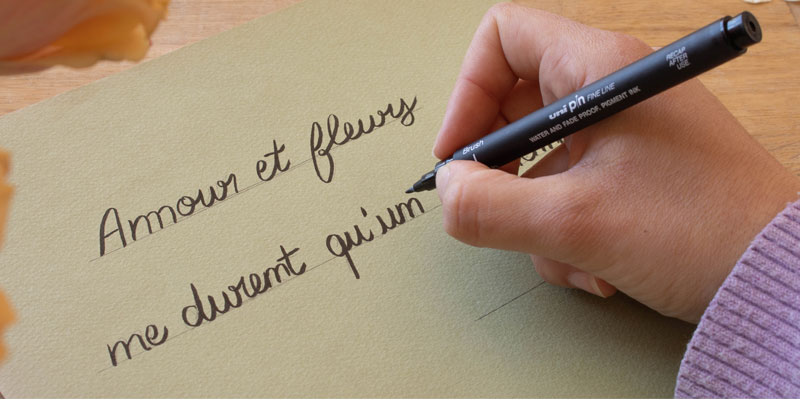 Amour et fleurs
ne durent qu'un
Brush
uni pin FINE LINE
WATER AND FADE PROOF, PIGMENT INK
RECAP
AFTER
USE